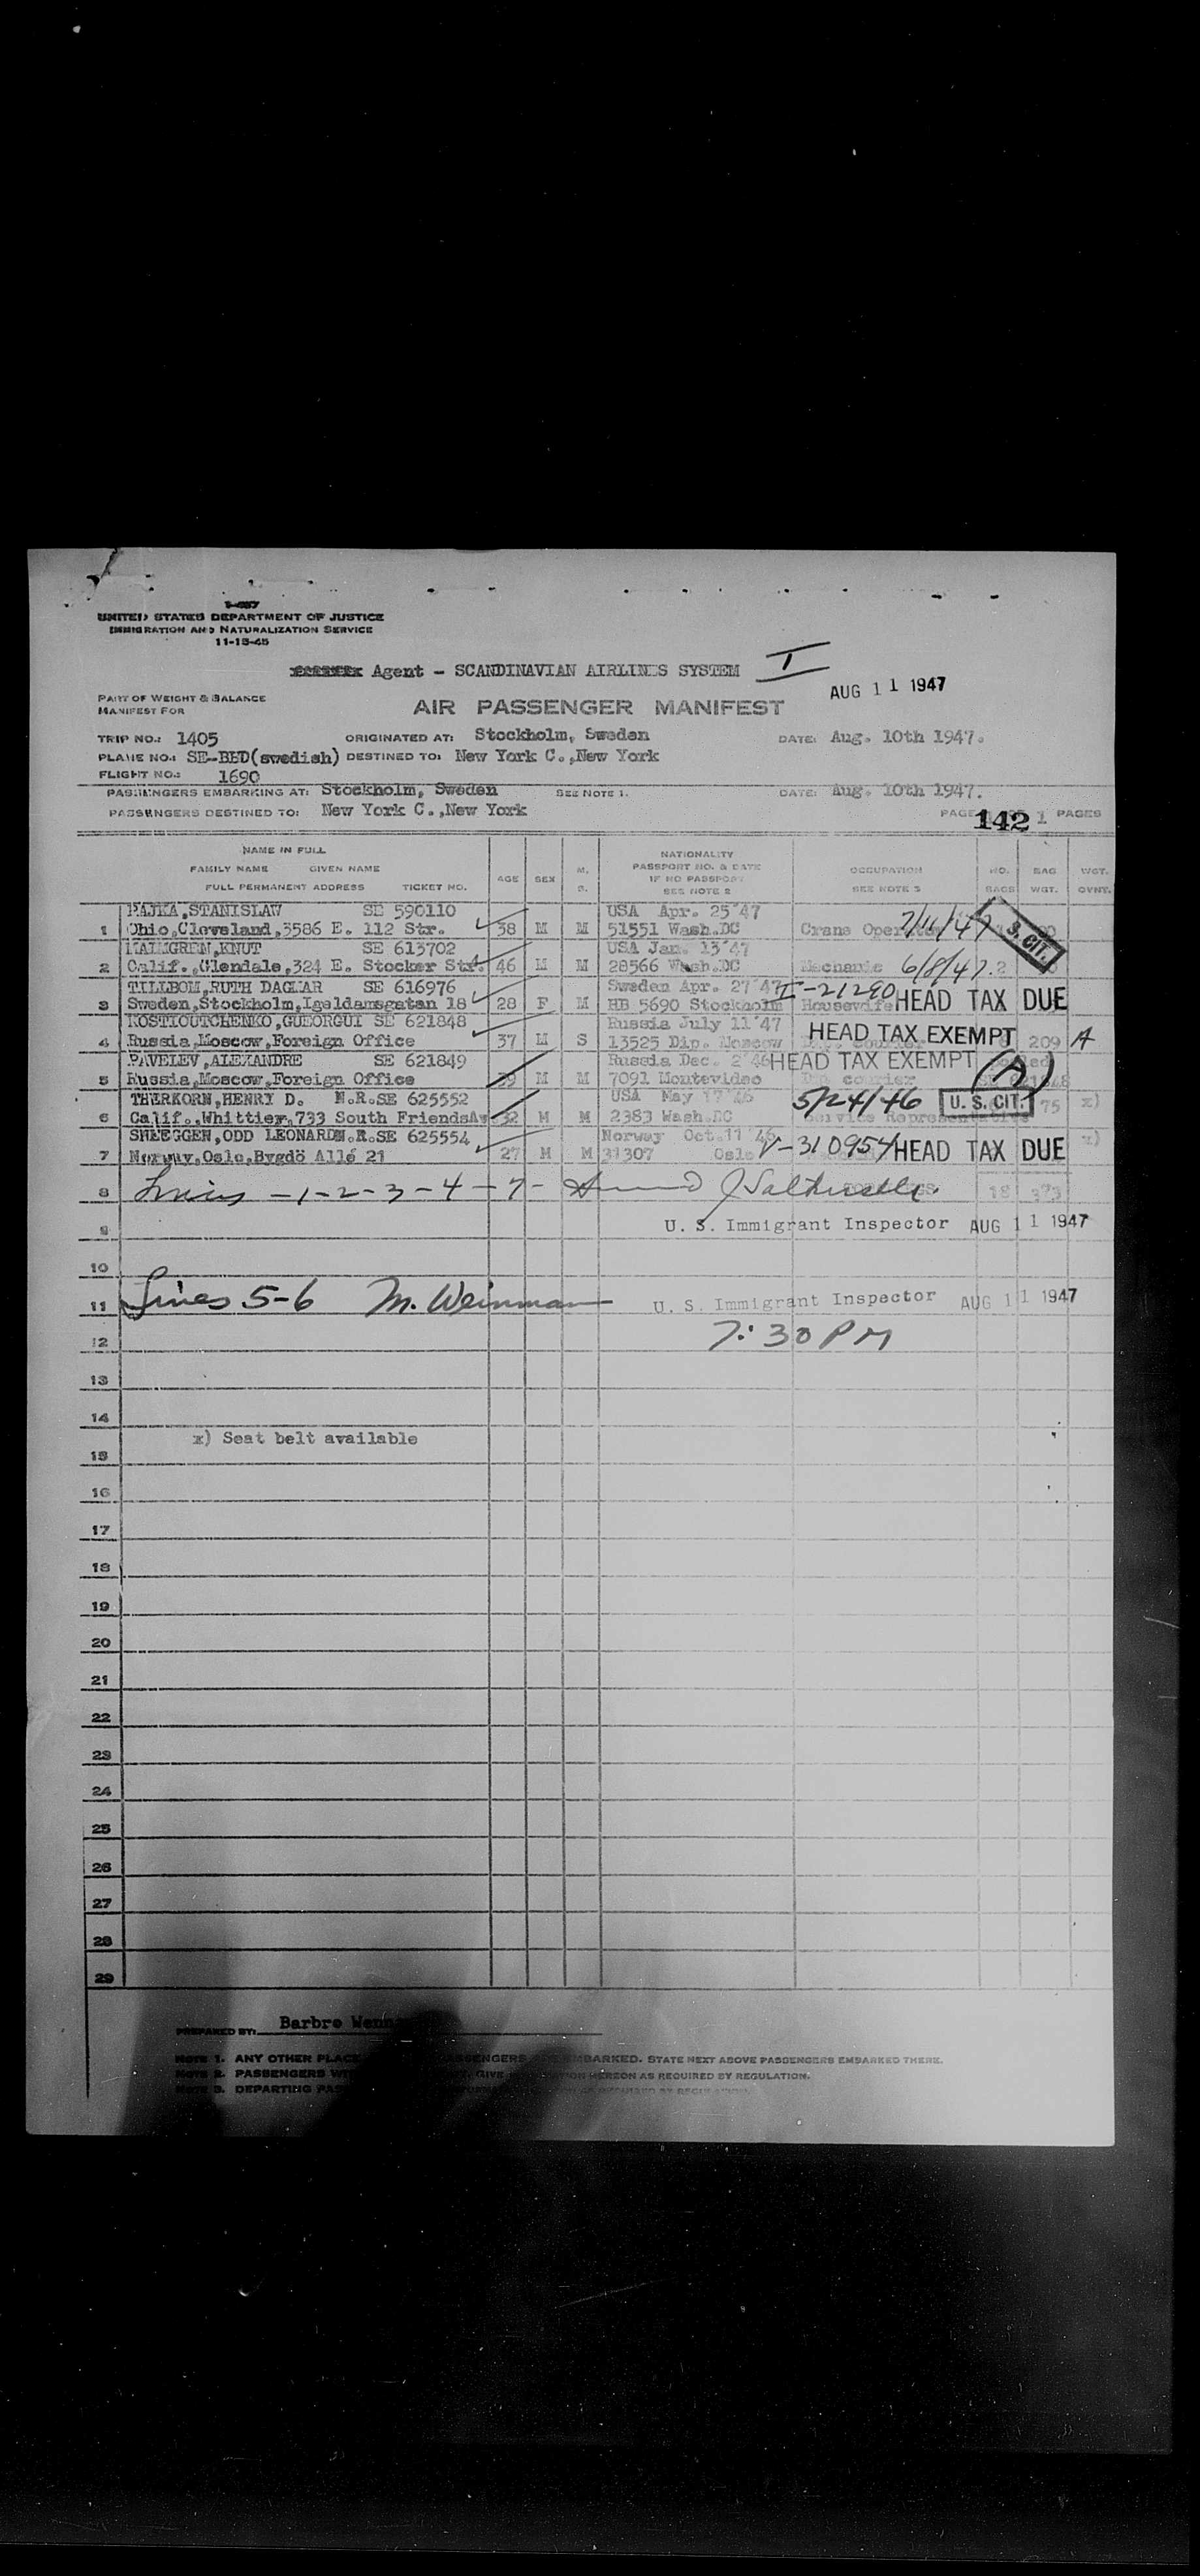 I-487
UNITED STATES DEPARTMENT OF JUSTICE
IMMIGRATION AND NATURALIZATION SERVICE
11-15-45
Agent - SCANDINAVIAN AIRLINES SYSTEM I
AUG 11 1947
PART OF WEIGHT & BALANCE
MANIFEST FOR
AIR PASSENGER MANIFEST
TRIP NO.: 1405 ORIGINATED AT: Stockholm, Sweden DATE: Aug. 10th 1947.
PLANE NO.: SE-BBD(swedish) DESTINED TO: New York C.,New York
FLIGHT NO.: 1690
PASSENGERS EMBARKING AT: Stockholm, Sweden SEE NOTE 1. DATE: Aug. 10th 1947.
PASSENGERS DESTINED TO: New York C.,New York PAGE 142 1 PAGES
NAME IN FULL
FAMILY NAME GIVEN NAME
FULL PERMANENT ADDRESS TICKET NO.
AGE SEX M. S.
NATIONALITY
PASSPORT NO. & DATE
IF NO PASSPORT
SEE NOTE 2
OCCUPATION
SEE NOTE 3
NO. BAGS BAG. WGT. WGT. OVNT.
PAJKA,STANISLAW SE 590110 USA Apr. 25'47
1 Ohio,Cleveland,3586 E. 112 Str. 38 M M 51551 Wash.DC Crane Operator 7/11/47 S. CIT.
MALMGREN,KNUT SE 613702 USA Jan. 13'47
2 Calif.,Glendale,324 E. Stocker Str. 46 M M 28566 Wash.DC Mechanic 6/8/47. 2
TILLBOM,RUTH DAGMAR SE 616976 Sweden Apr. 27'47 I-21290
3 Sweden,Stockholm,Igeldamsgatan 18 28 F M HB 5690 Stockholm Housewife HEAD TAX DUE
KOSTIOUTCHENKO,GUEORGUI SE 621848 Russia July 11'47
4 Russia,Moscow,Foreign Office 37 M S 13525 Dip. Moscow HEAD TAX EXEMPT 209 A
PAVELEV,ALEXANDRE SE 621849 Russia Dec. 2'46 HEAD TAX EXEMPT (A)
5 Russia,Moscow,Foreign Office 39 M M 7091 Montevideo courier
THERKORN,HENRY D. N.R.SE 625552 USA May 17'46 5/24/46 U. S. CIT. 75 x)
6 Calif.,Whittier,733 South FriendsAv 32 M M 2383 Wash.DC Service Representative
SKJEGGEN,ODD LEONARD N.R.SE 625554 Norway Oct.11'46 V-310954 HEAD TAX DUE x)
7 Norway,Oslo,Bygdö Allé 21 27 M M 31307 Oslo
8 Lines -1-2-3-4-7- 18 373
9 U. S. Immigrant Inspector AUG 11 1947
10
11 Lines 5-6 M. Weinman U. S. Immigrant Inspector AUG 11 1947
12 7:30 PM
13
14
x) Seat belt available
15
16
17
18
19
20
21
22
23
24
25
26
27
28
29
PREPARED BY: Barbro
NOTE 1. ANY OTHER PLACE PASSENGERS ARE EMBARKED. STATE NEXT ABOVE PASSENGERS EMBARKED THERE.
NOTE 2. PASSENGERS GIVE HEREON AS REQUIRED BY REGULATION.
NOTE 3. DEPARTING